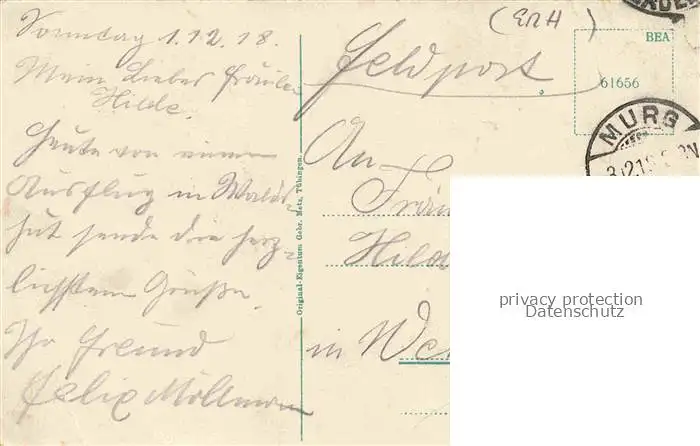 Sonntag 1.12.18.
Mein Lieber Fräulein
Hilde.
Heute von einem
Ausflug in Walds-
hut sende die herz-
lichsten Grüße.
Ihr Freund
Felix Möllmann
Original-Eigentum Gebr. Metz, Tübingen.
Feldpost
An
Fräu
Hild
in We
BEA
61656
MURG
privacy protection
Datenschutz